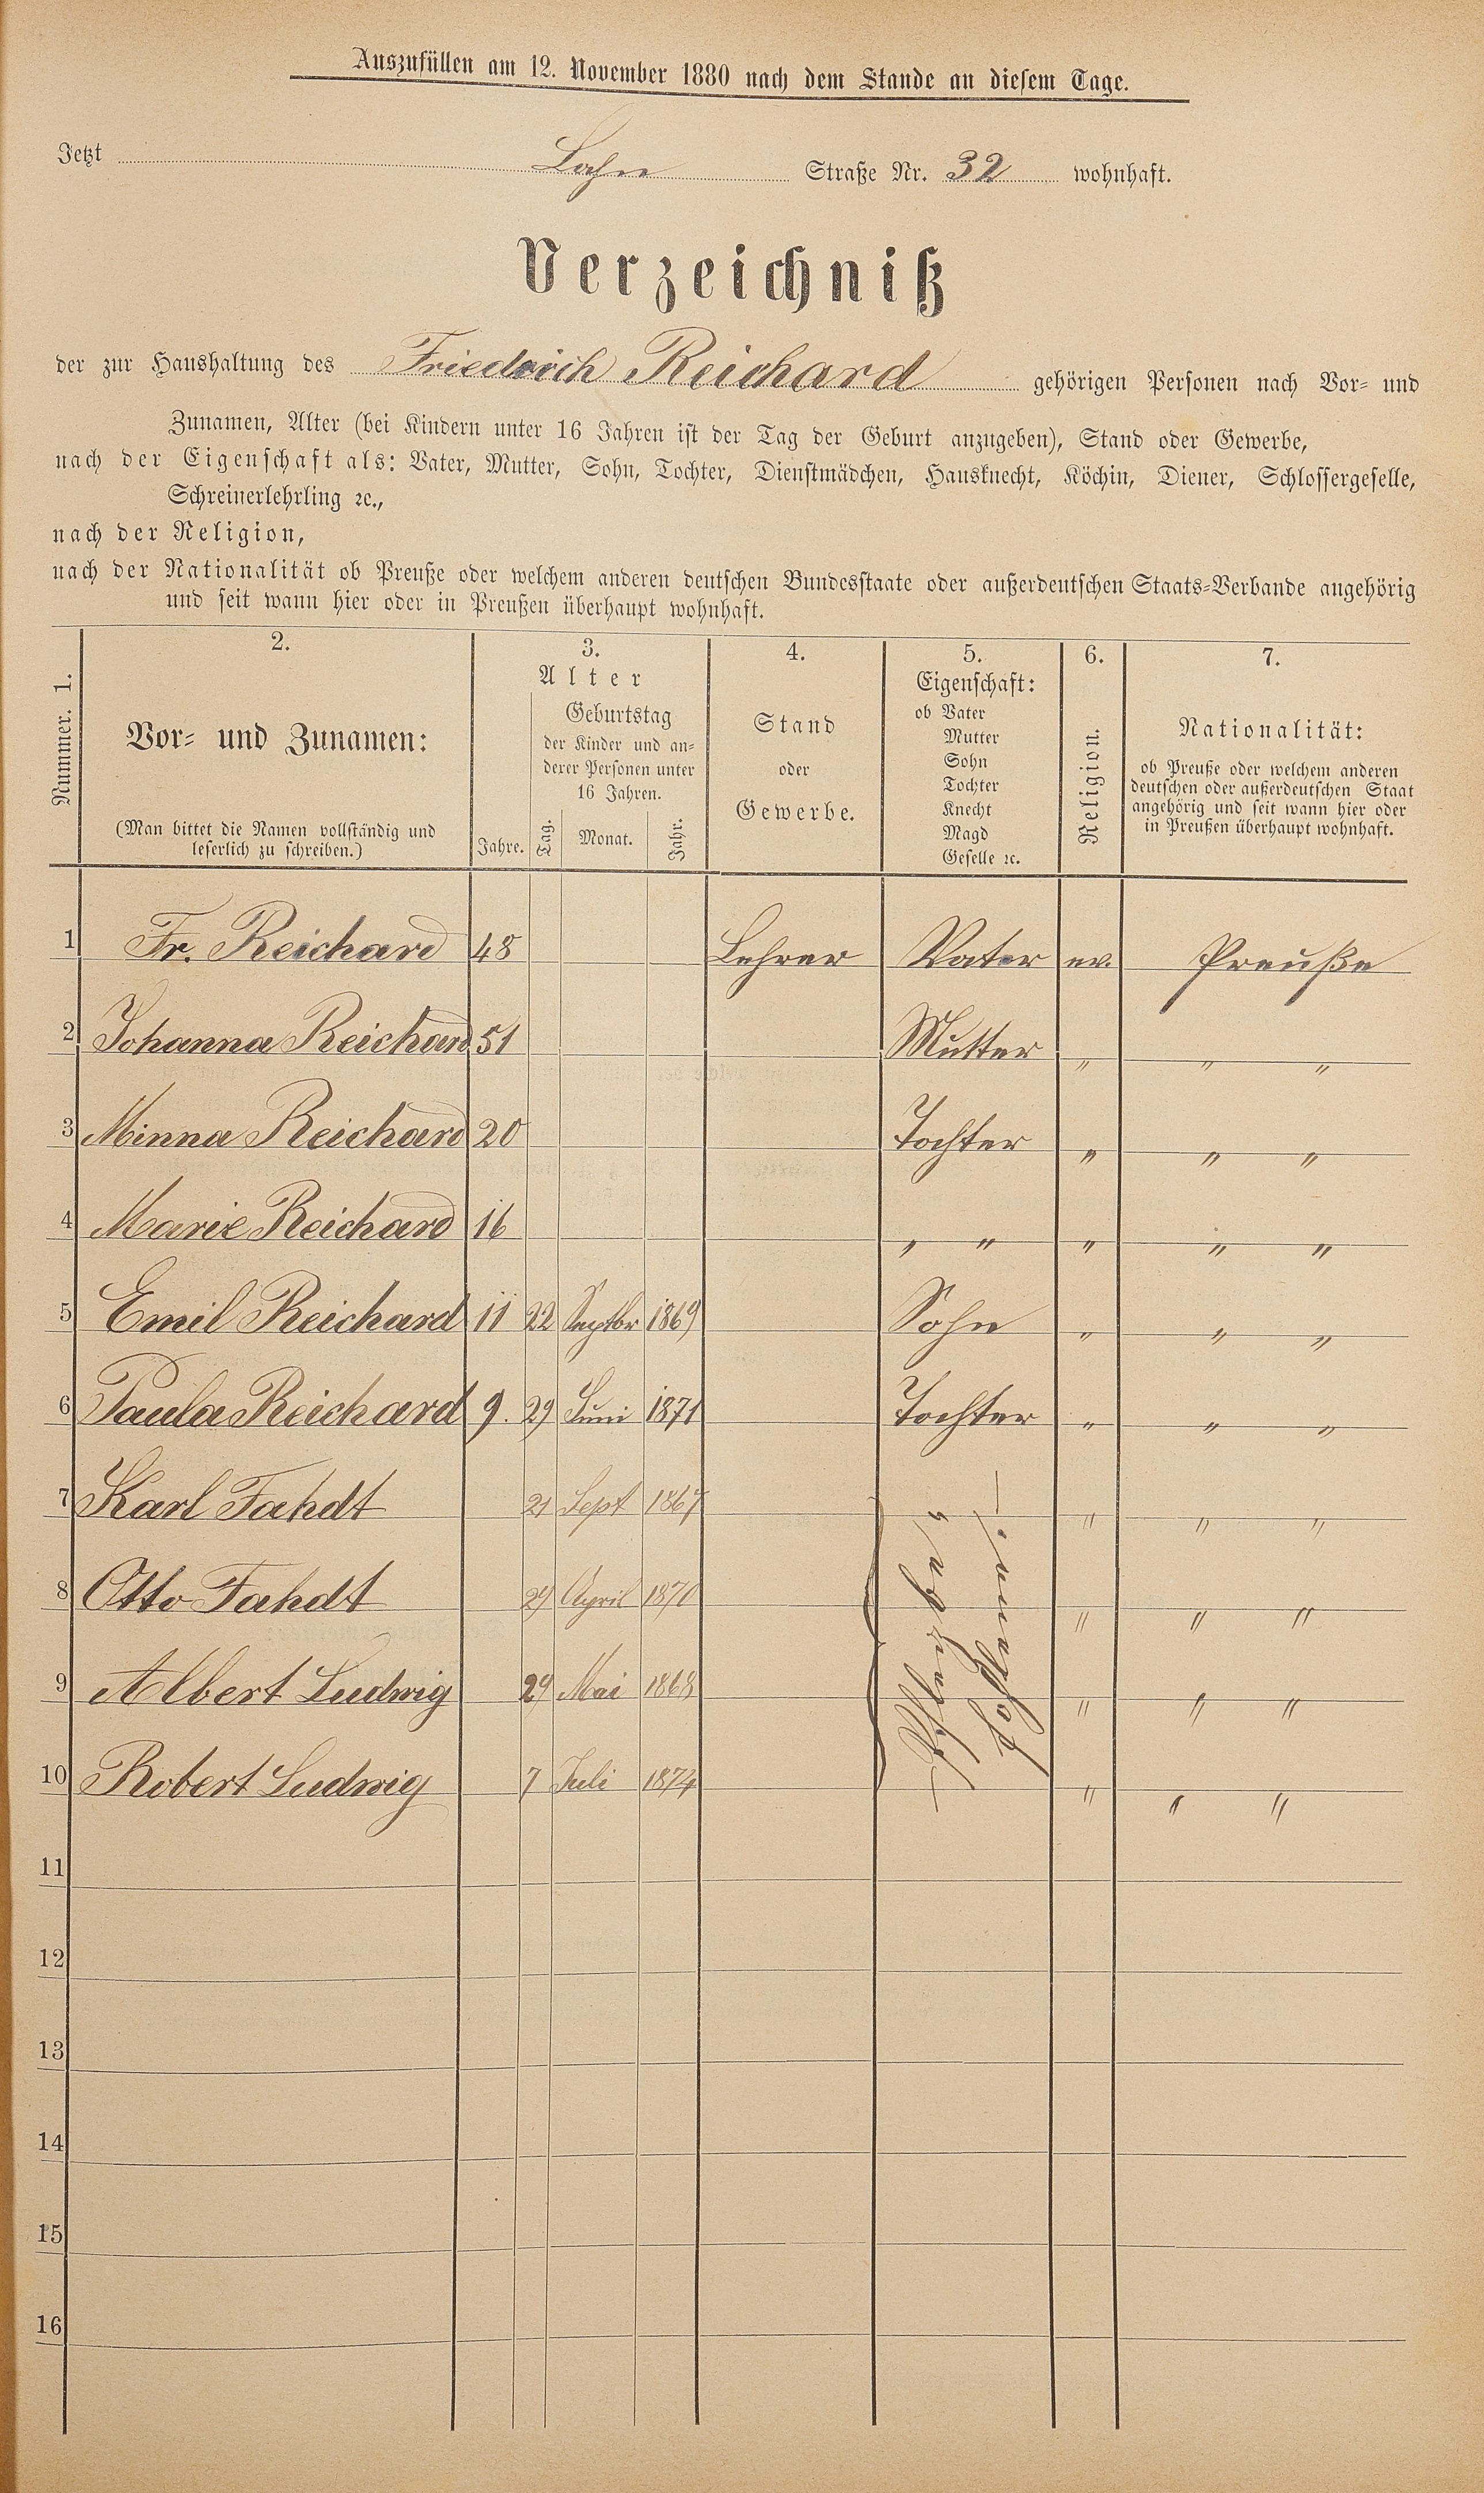 Auszufüllen am 12. November 1880 nach dem Stande an diesem Tage.
Jetzt Lahn Straße Nr. 32 wohnhaft.
Verzeichniß
der zur Haushaltung des Friedrich Reichard gehörigen Personen nach Vor- und
Zunamen, Alter (bei Kindern unter 16 Jahren ist der Tag der Geburt anzugeben), Stand oder Gewerbe,
nach der Eigenschaft als: Vater, Mutter, Sohn, Tochter, Dienstmädchen, Hausknecht, Köchin, Diener, Schlossergeselle,
Schreinerlehrling ꝛc.,
nach der Religion,
nach der Nationalität ob Preuße oder welchem anderen deutschen Bundesstaate oder außerdeutschen Staats-Verbande angehörig
und seit wann hier oder in Preußen überhaupt wohnhaft.
Nummer. 1.
2.
Vor- und Zunamen:
(Man bittet die Namen vollständig und
leserlich zu schreiben.)
3.
Alter
Jahre.
Geburtstag
der Kinder und an-
derer Personen unter
16 Jahren.
Tag. Monat. Jahr.
4.
Stand
oder
Gewerbe.
5.
Eigenschaft:
ob Vater
Mutter
Sohn
Tochter
Knecht
Magd
Geselle ꝛc.
6.
Religion.
7.
Nationalität:
ob Preuße oder welchem anderen
deutschen oder außerdeutschen Staat
angehörig und seit wann hier oder
in Preußen überhaupt wohnhaft.
1 Fr. Reichard 48 Lehrer Vater ev. Preuße
2 Johanna Reichard 51 Mutter " " "
3 Minna Reichard 20 Tochter " " "
4 Marie Reichard 16 " " " " "
5 Emil Reichard 11 22 Septbr 1869 Sohn " " "
6 Paula Reichard 9. 29 Juni 1871 Tochter " " "
7 Karl Fahdt 21 Sept 1867 " " "
8 Otto Fahdt 29 April 1870 " " "
9 Albert Ludwig 29 Mai 1868 " " "
10 Robert Ludwig 7 Juli 1874 " " "
11
12
13
14
15
16